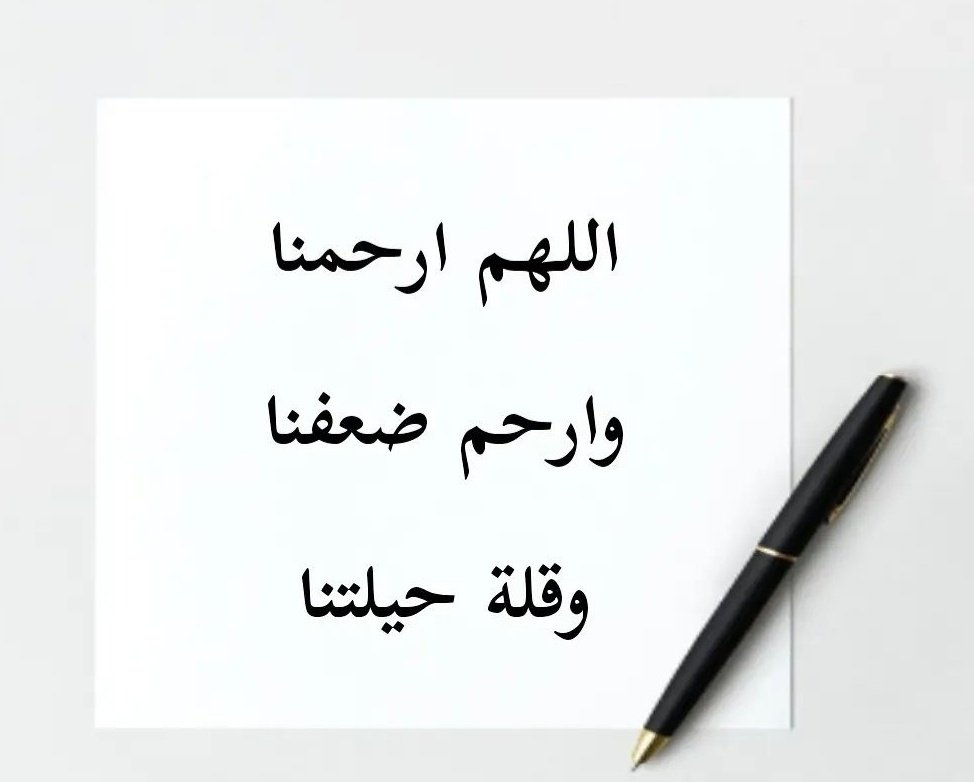 اللهم ارحمنا
وارحم ضعفنا
وقلة حيلتنا